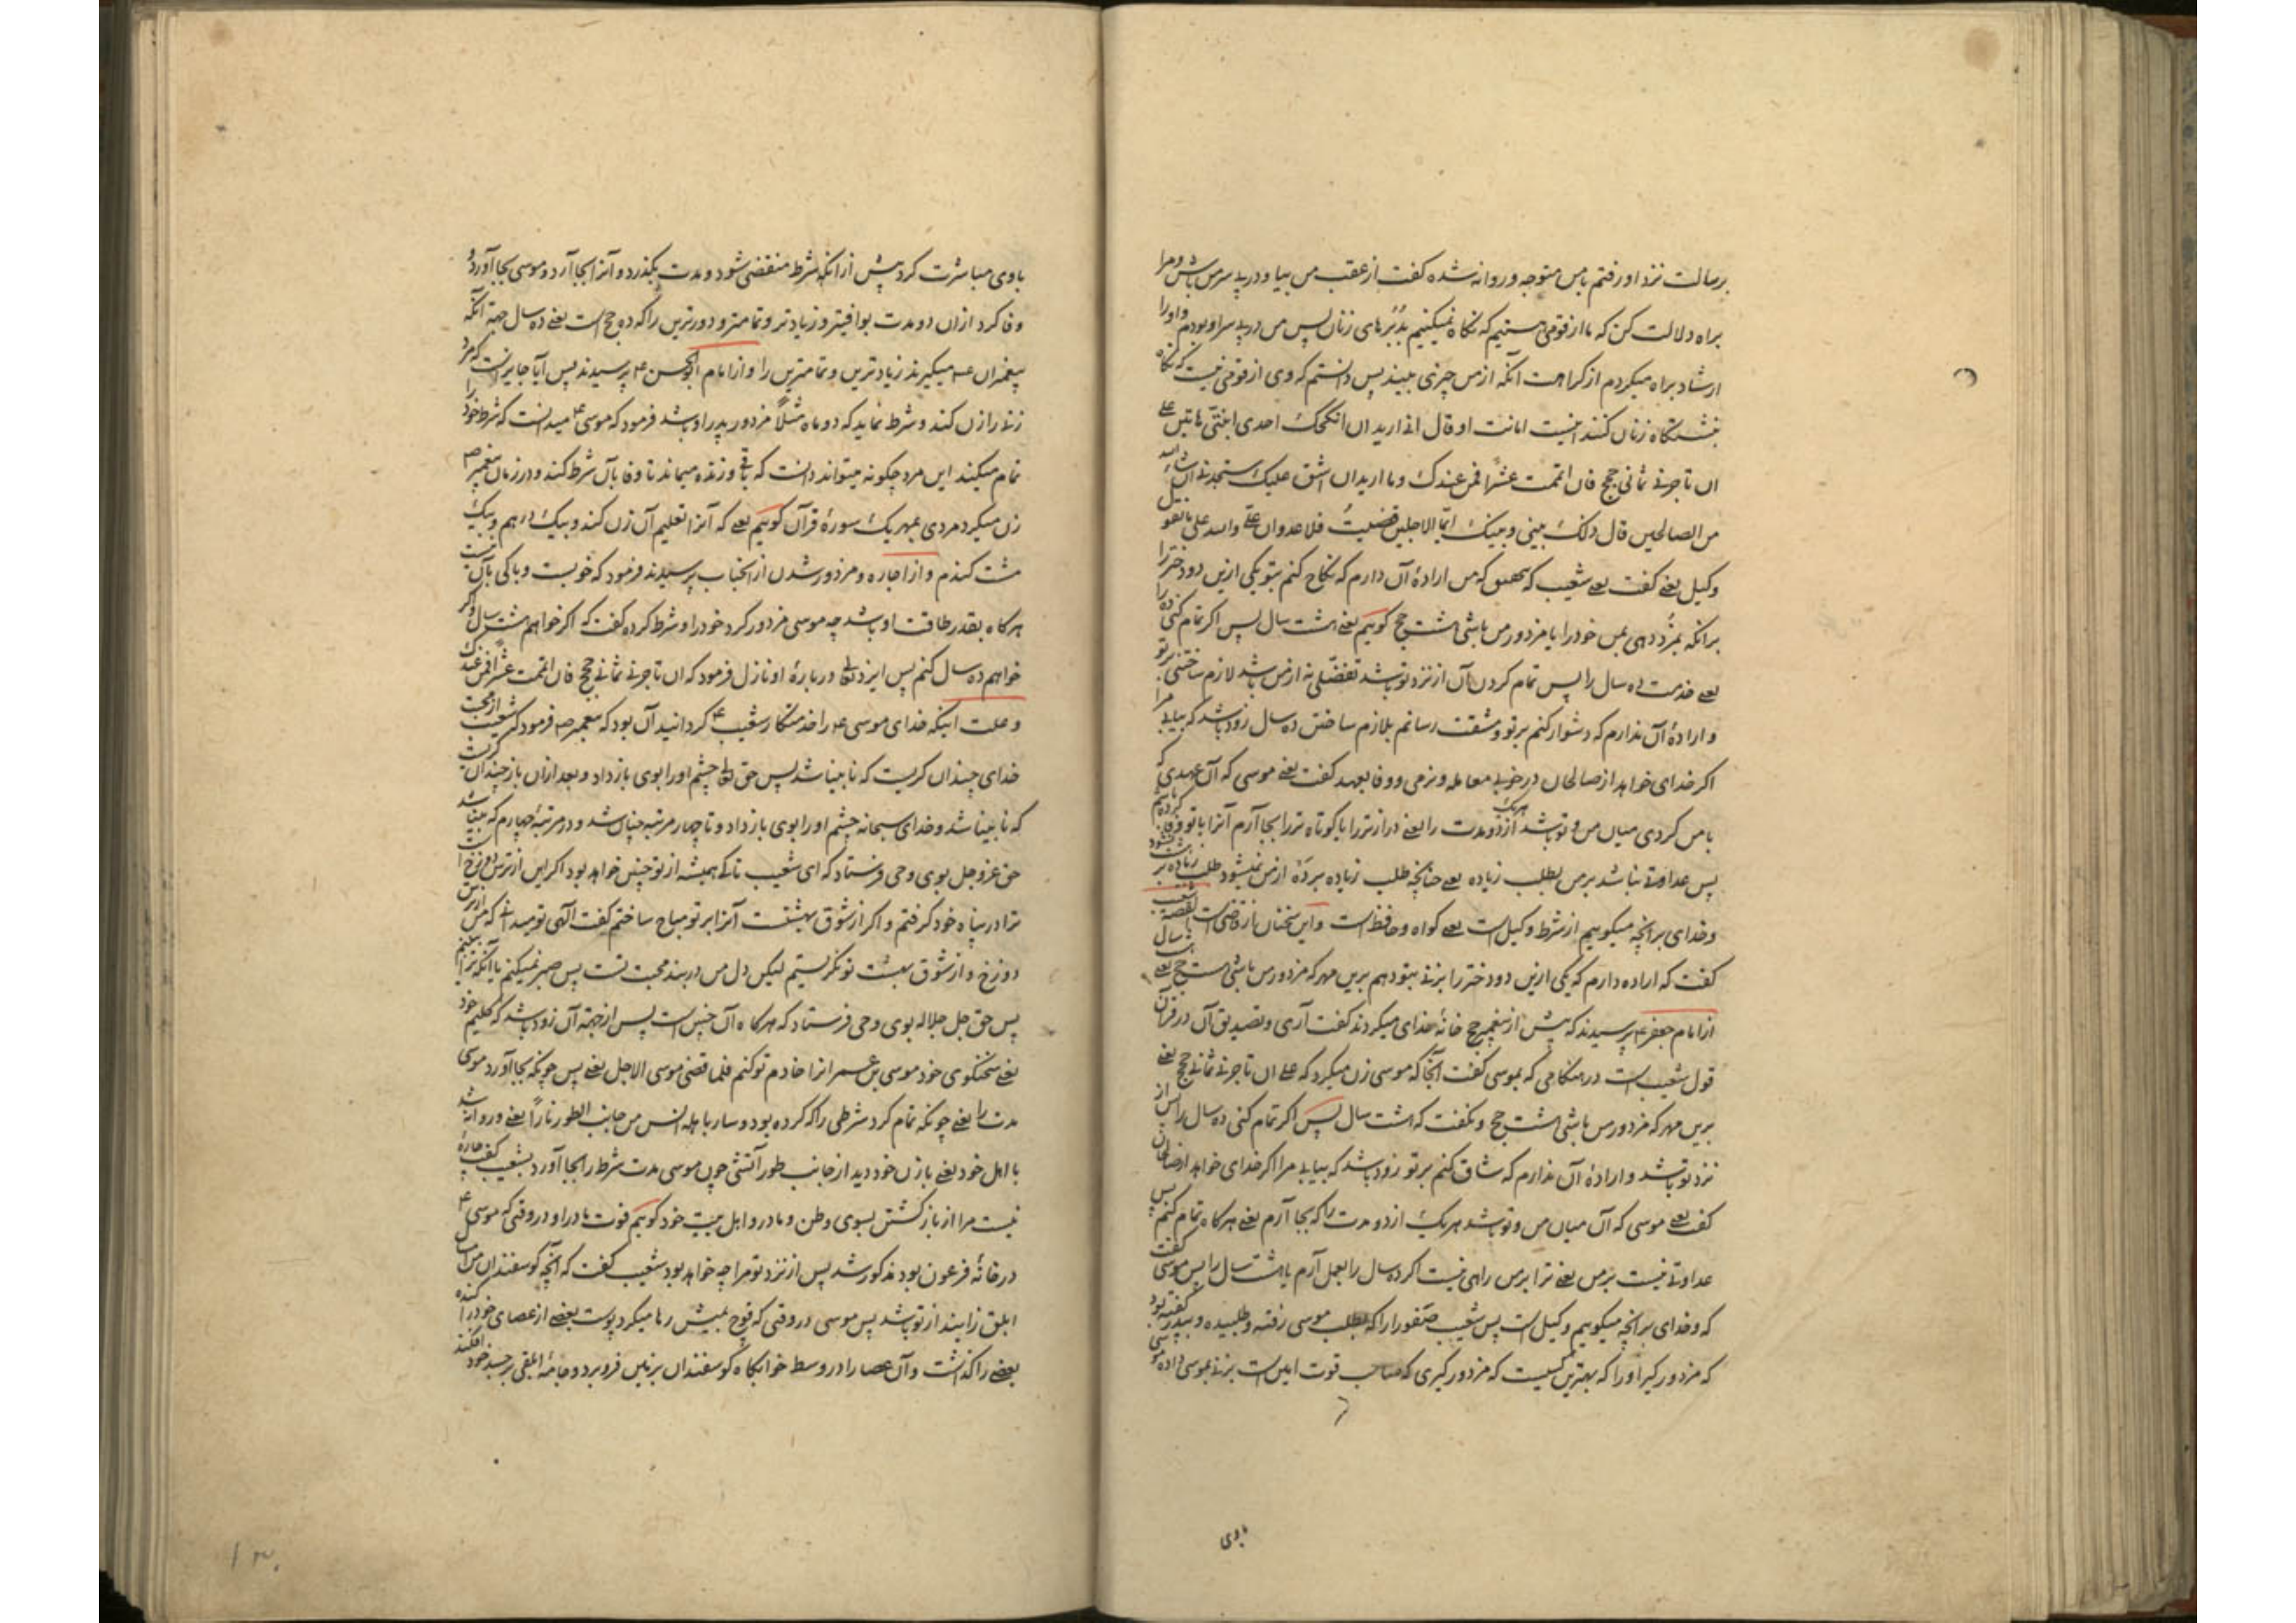 برسالت نزد او رفتم بامن متوجه و روانه شده گفت از عقب من بیا و در پی سر من باش و مرا
براه دلالت کن که ما از قومی هستیم که نگاه نمیکنیم بدُبُرهای زنان پس من در پی سر او بودم و او را
ارشاد براه میکردم از کراهت آنکه از من چیزی ببیند پس دانستم که وی از قومی نیست که نگاه
بنشستگاه زنان کنند اینست امانت او قال انی ارید ان انکحک احدی ابنتی هاتین علی
ان تاجرنی ثمانی حجج فان اتممت عشرًا فمن عندک وما ارید ان اشق علیک ستجدنی ان شاء الله
من الصالحین قال ذلک بینی و بینک ایّما الاجلین قضیتُ فلا عدوان علیّ والله علی ما نقول
وکیل یعنی گفت یعنی شعیب که بتحقیق که من ارادهٔ آن دارم که نکاح کنم بتو یکی ازین دو دختر را
برانکه بمزد دهی بمن خود را یا مزدور من باشی هشت حج گوییم یعنی هشت سال پس اگر تمام کنی ده را
یعنی خدمت ده سال را پس تمام کردن آن از نزد تو باشد تفضّلی نه از من باشد لازم ساختنی بر تو
و ارادهٔ آن ندارم که دشوار کنم بر تو و مشقت رسانم بلازم ساختن ده سال زود باشد که بیابی مرا
اگر خدای خواهد از صالحان در خوبی معامله و نرمی و وفا بعهد گفت یعنی موسی که آن عهدی که
با من کردی میان من و تو باشد هریک از دو مدت را یعنی درازتر را یا کوتاه تر را بجا آرم آنرا با تو وفا کرده باشم
پس عداوتی نباشد بر من بطلب زیاده یعنی چنانچه طلب زیاده بر ده از من نمیشود طلب زیاده بر هشت نشود
و خدای برانچه میگوییم از شرط وکیل است یعنی گواه و حافظ است و این سخنان از قاضی است القصه شعیب
گفت که اراده دارم که یکی ازین دو دختر را بزنی بتو دهم برین مهر که مزدور من باشی هشت حج یعنی هشت سال
از امام جعفر ع پرسیدند که پیش از پیغمبر حج خانهٔ خدای میکردند گفت آری و تصدیق آن در قرآن
قول شعیب است در هنگامی که بموسی گفت آنجا که موسی زن میکرد که علی ان تاجرنی ثمانی حجج یعنی
برین مهر که مزدور من باشی هشت حج و نگفت که هشت سال پس اگر تمام کنی ده سال را پس از
نزد تو باشد و ارادهٔ آن ندارم که شاق کنم بر تو زود باشد که بیابی مرا اگر خدای خواهد از صالحان
گفت یعنی موسی که آن میان من و تو باشد هر یک از دو مدت را که بجا آرم یعنی هرگاه تمام کنم پس
عداوتی نیست بر من یعنی ترا بر من راهی نیست اگر ده سال را بعمل آرم یا هشت سال را پس موسی گفت
که و خدای برانچه میگوییم وکیل است پس شعیب صفورا را که بطلب موسی رفته و طلبیده و بپدر گفته بود
که مزدور گیر او را که بهترین کسیست که مزدور گیری که صاحب قوت امین است بزنی بموسی داده موسی
باوی
باوی مباشرت کرد پیش از انکه شرط منقضی شود و مدت بگذرد و آنرا بجا آرد و موسی بجا آورد و
وفا کرد از ان دو مدت بوافیتر و زیادتر و تمامتر و دورترین را که ده حج است یعنی ده سال جهة آنکه
پیغمبران ع میگیرند زیادترین و تمامترین را و از امام ابوالحسن ع پرسیدند پس آیا جایز است که مرد
زنی را زن کند و شرط نماید که دو ماه مثلًا مزدور پدر او باشد فرمود که موسی ع میدانست که شرط خود را
تمام میکند این مرد چگونه میتواند دانست که باقی و زنده میماند تا وفا بآن شرط کند و در زمان پیغمبر ص
زن میکرد مردی بمهر یک سورهٔ قرآن گوییم یعنی که آنرا تعلیم آن زن کند و بیک درهم و بیک
مشت گندم و از اجاره و مزدور شدن از انجناب پرسیدند فرمود که خوبست و باکی بآن نیست
هرگاه بقدر طاقت او باشد چه موسی مزدور کرد خود را و شرط کرده گفت که اگر خواهم هشت سال و اگر
خواهم ده سال کنم پس ایزد تعالی دربارهٔ او نازل فرمود که ان تاجرنی ثمانی حجج فان اتممت عشرًا فمن عندک
و علت اینکه خدای موسی ع را خدمتکار شعیب ع گردانید آن بود که پیغمبر ص فرمود که شعیب از محبت
خدای چندان گریست که نابینا شد پس حق تعالی چشم او را بوی باز داد و بعد از ان باز چندان گریست
که نابینا شد و خدای سبحانه چشم او را بوی باز داد و تا چهار مرتبه چنان شد و در مرتبهٔ چهارم که بینا شد
حق عز و جل بوی وحی فرستاد که ای شعیب تا کی همیشه از تو چنین خواهد بود اگر این از ترس دوزخ است
ترا در پناه خود گرفتم و اگر از شوق بهشتست آنرا بر تو مباح ساختم گفت الهی تو میدانی که من از ترس
دوزخ و از شوق بهشت تو نگریستم لیکن دل من در بند محبت تست پس صبر نمیکنم یا آنکه ترا ببینم
پس حق جل جلاله بوی وحی فرستاد که هرگاه آن چنین است پس از جهة آن زود باشد که کلیم خود
یعنی سخنگوی خود موسی بن عمران را خادم تو کنم فلما قضی موسی الاجل یعنی پس چونکه بجا آورد موسی
مدت را یعنی چونکه تمام کرد شرطی را که کرده بود و سار باهله انس من جانب الطور نارًا یعنی و روانه شد
با اهل خود یعنی با زن خود دید از جانب طور آتشی چون موسی مدت شرط را بجا آورد بشعیب گفت چاره
نیست مرا از باز گشتن بسوی وطن و مادر و اهل بیت خود گوییم فوت مادر او در وقتی که موسی ع
در خانهٔ فرعون بود مذکور شد پس از نزد تو مرا چه خواهد بود شعیب گفت که آنچه گوسفندان من امسال
ابلق زایند از تو باشد پس موسی در وقتی که قوچ بمیش رها میکرد پوست بعضی از عصای خود را کنده
بعضی را گذاشت و آن عصا را در وسط خوابگاه گوسفندان بزمین فرو برد و جامهٔ ابلقی بر جسد خود افکند
۱۳۰